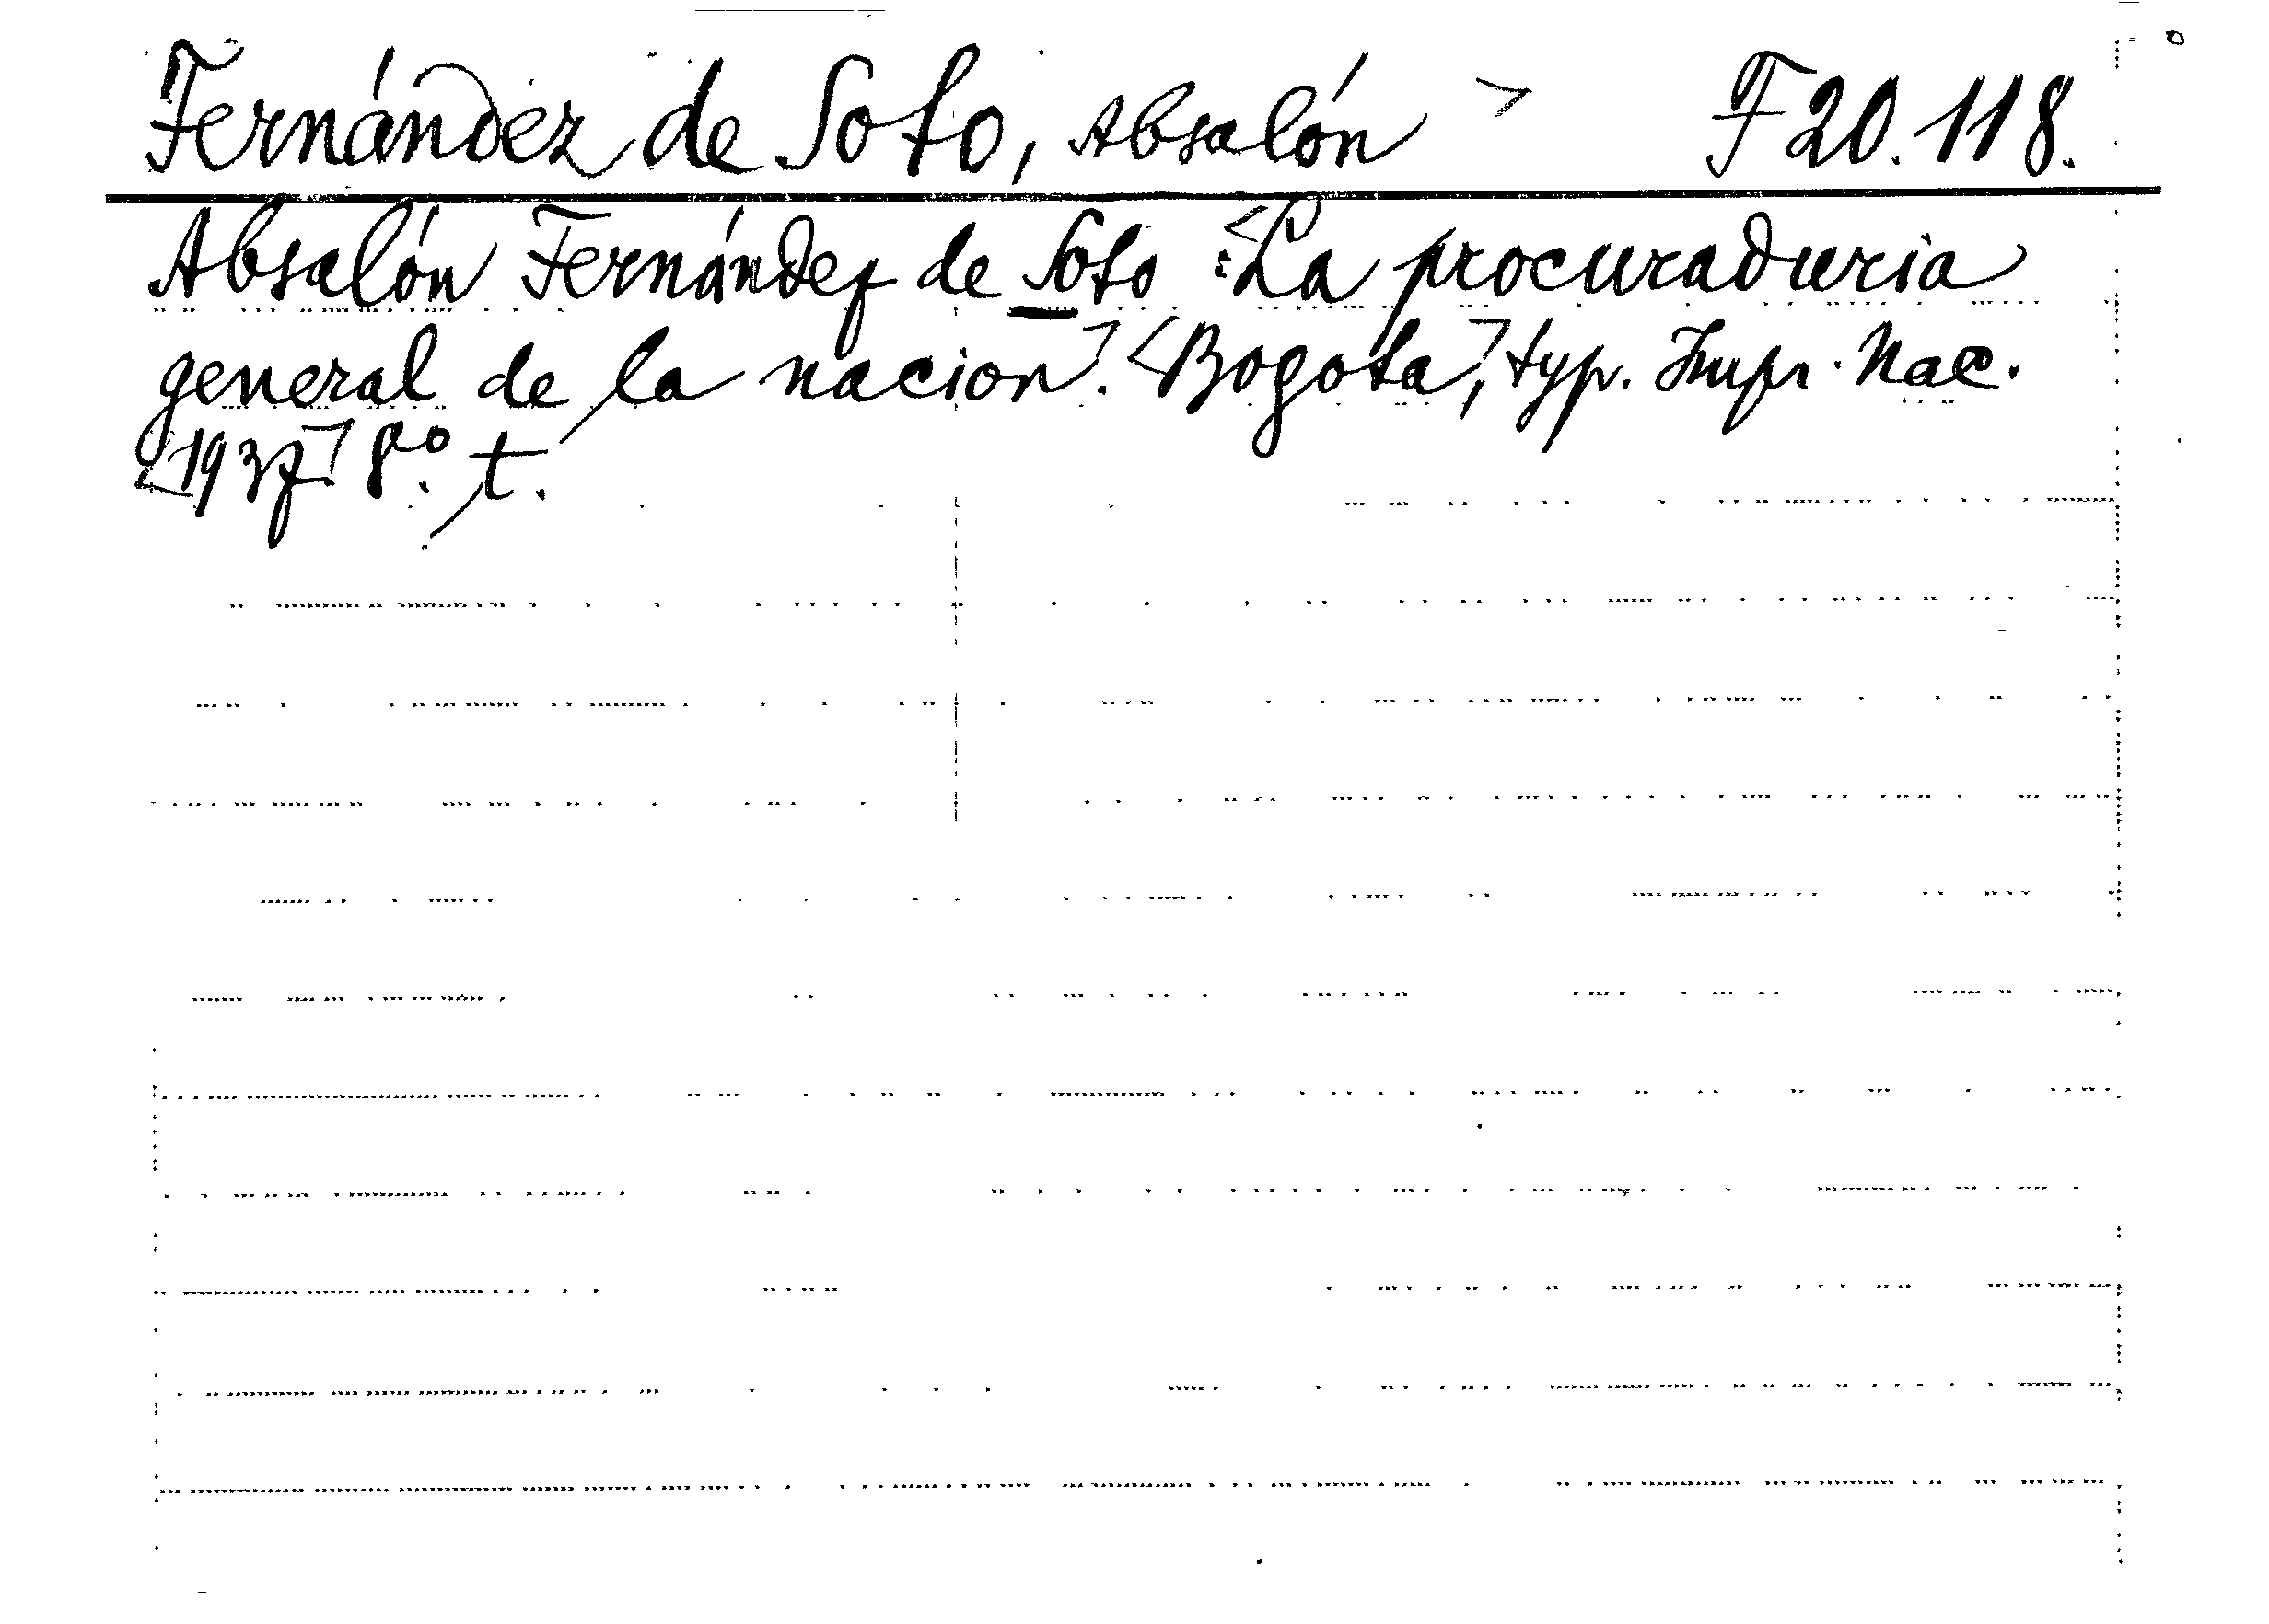 Fernández de Soto, Absalón > F 20.118.
Absalón Fernández de Soto : <La procuraduria
general de la nacion>. <Bogota>, typ. Impr. Nac.
<1937> 8º. t.